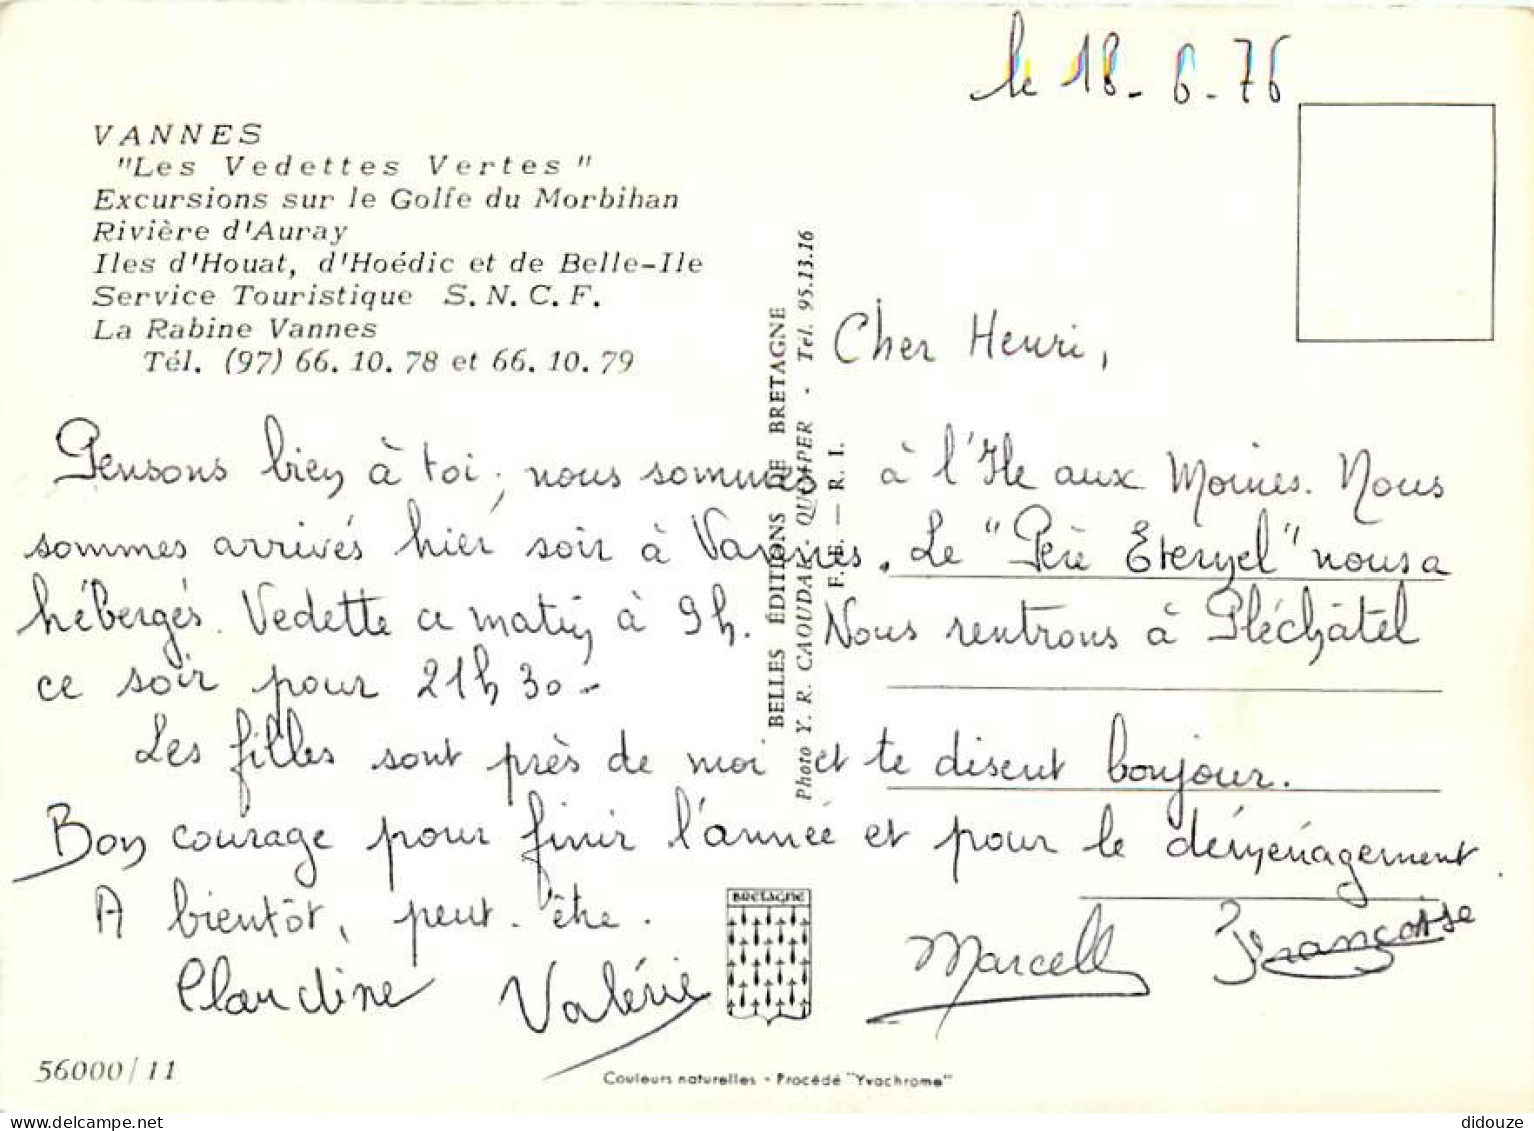 le 18-6-76
VANNES
"Les Vedettes Vertes"
Excursions sur le Golfe du Morbihan
Rivière d'Auray
Iles d'Houat, d'Hoédic et de Belle-Ile
Service Touristique S.N.C.F.
La Rabine Vannes
Tél. (97) 66.10.78 et 66.10.79
BELLES ÉDITIONS DE BRETAGNE
Photo Y. R. CAOUDAL - QUIMPER - Tél. 95.13.16
R. I.
Cher Henri,
Pensons bien à toi ; nous sommes à l'Ile aux Moines. Nous
sommes arrivés hier soir à Vannes. Le "Père Eternel" nous a
hébergés. Vedette ce matin à 9h. Nous rentrons à Pléchâtel
ce soir pour 21h 30 -
Les filles sont près de moi et te disent bonjour.
Bon courage pour finir l'année et pour le déménagement.
A bientôt, peut-être.
Claudine Valérie Marcelle Françoise
BRETAGNE
56000/11
Couleurs naturelles - Procédé "Yvachrome"
didouze